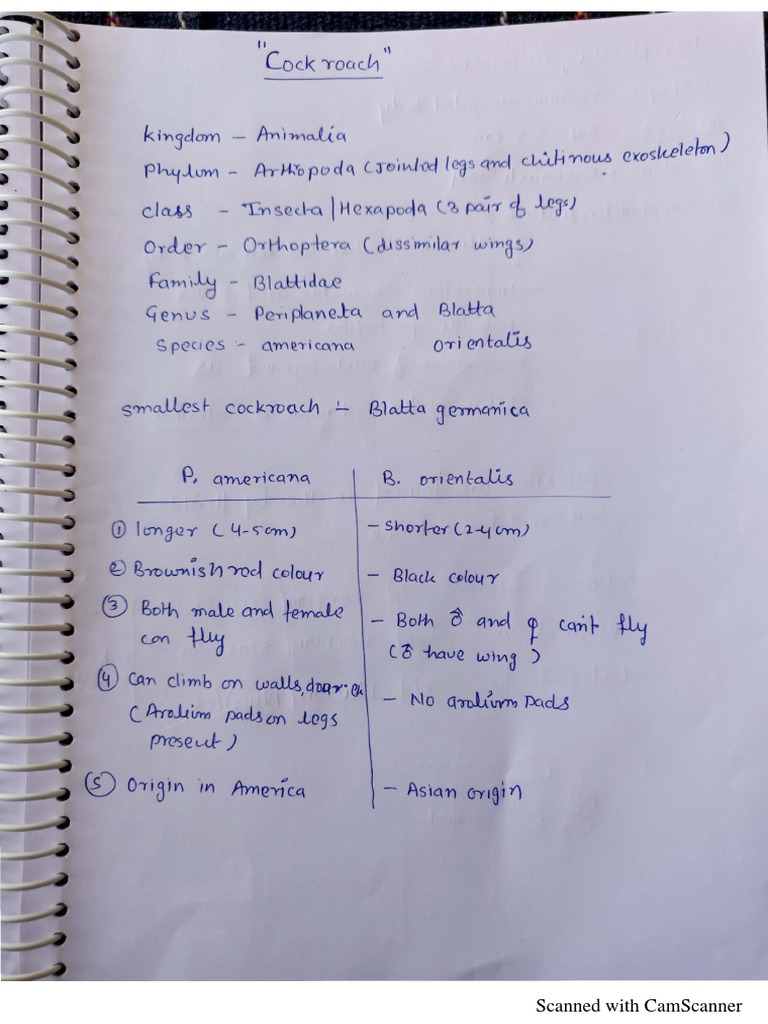 "Cockroach"
Kingdom – Animalia
Phylum – Arthropoda (Jointed legs and chitinous exoskeleton)
Class – Insecta | Hexapoda (3 pair of legs)
Order – Orthoptera (dissimilar wings)
Family – Blattidae
Genus – Periplaneta and Blatta
Species – americana orientalis
smallest cockroach :- Blatta germanica
P. americana B. orientalis
① longer (4-5cm) – Shorter (2-4cm)
② Brownish red colour – Black colour
③ Both male and female – Both ♂ and ♀ can't fly
can fly (♂ have wing)
④ Can climb on walls, door, – No arolium pads
(Arolium pads on legs
present)
⑤ Origin in America – Asian origin
Scanned with CamScanner